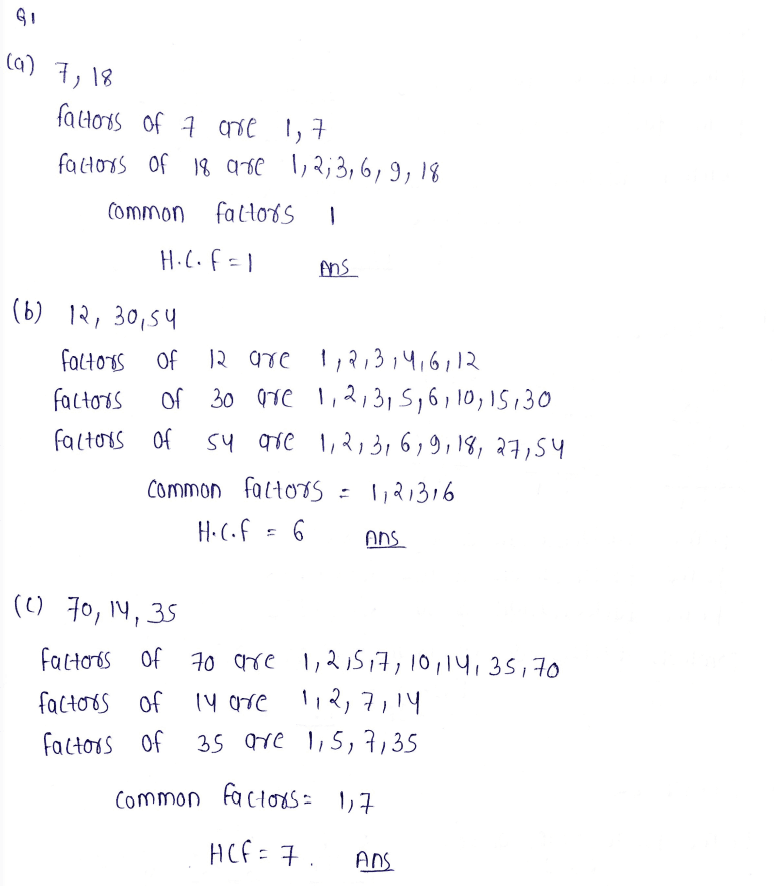 Q1
(a) 7, 18
factors of 7 are 1, 7
factors of 18 are 1, 2, 3, 6, 9, 18
common factors 1
H.C.f = 1 Ans
(b) 12, 30, 54
factors of 12 are 1, 2, 3, 4, 6, 12
factors of 30 are 1, 2, 3, 5, 6, 10, 15, 30
factors of 54 are 1, 2, 3, 6, 9, 18, 27, 54
common factors = 1, 2, 3, 6
H.C.f = 6 Ans
(c) 70, 14, 35
factors of 70 are 1, 2, 5, 7, 10, 14, 35, 70
factors of 14 are 1, 2, 7, 14
factors of 35 are 1, 5, 7, 35
common factors = 1, 7
HCf = 7. Ans